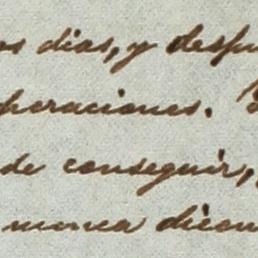 os dias, y despu
peraciones.
de conseguir,
nunca dieron